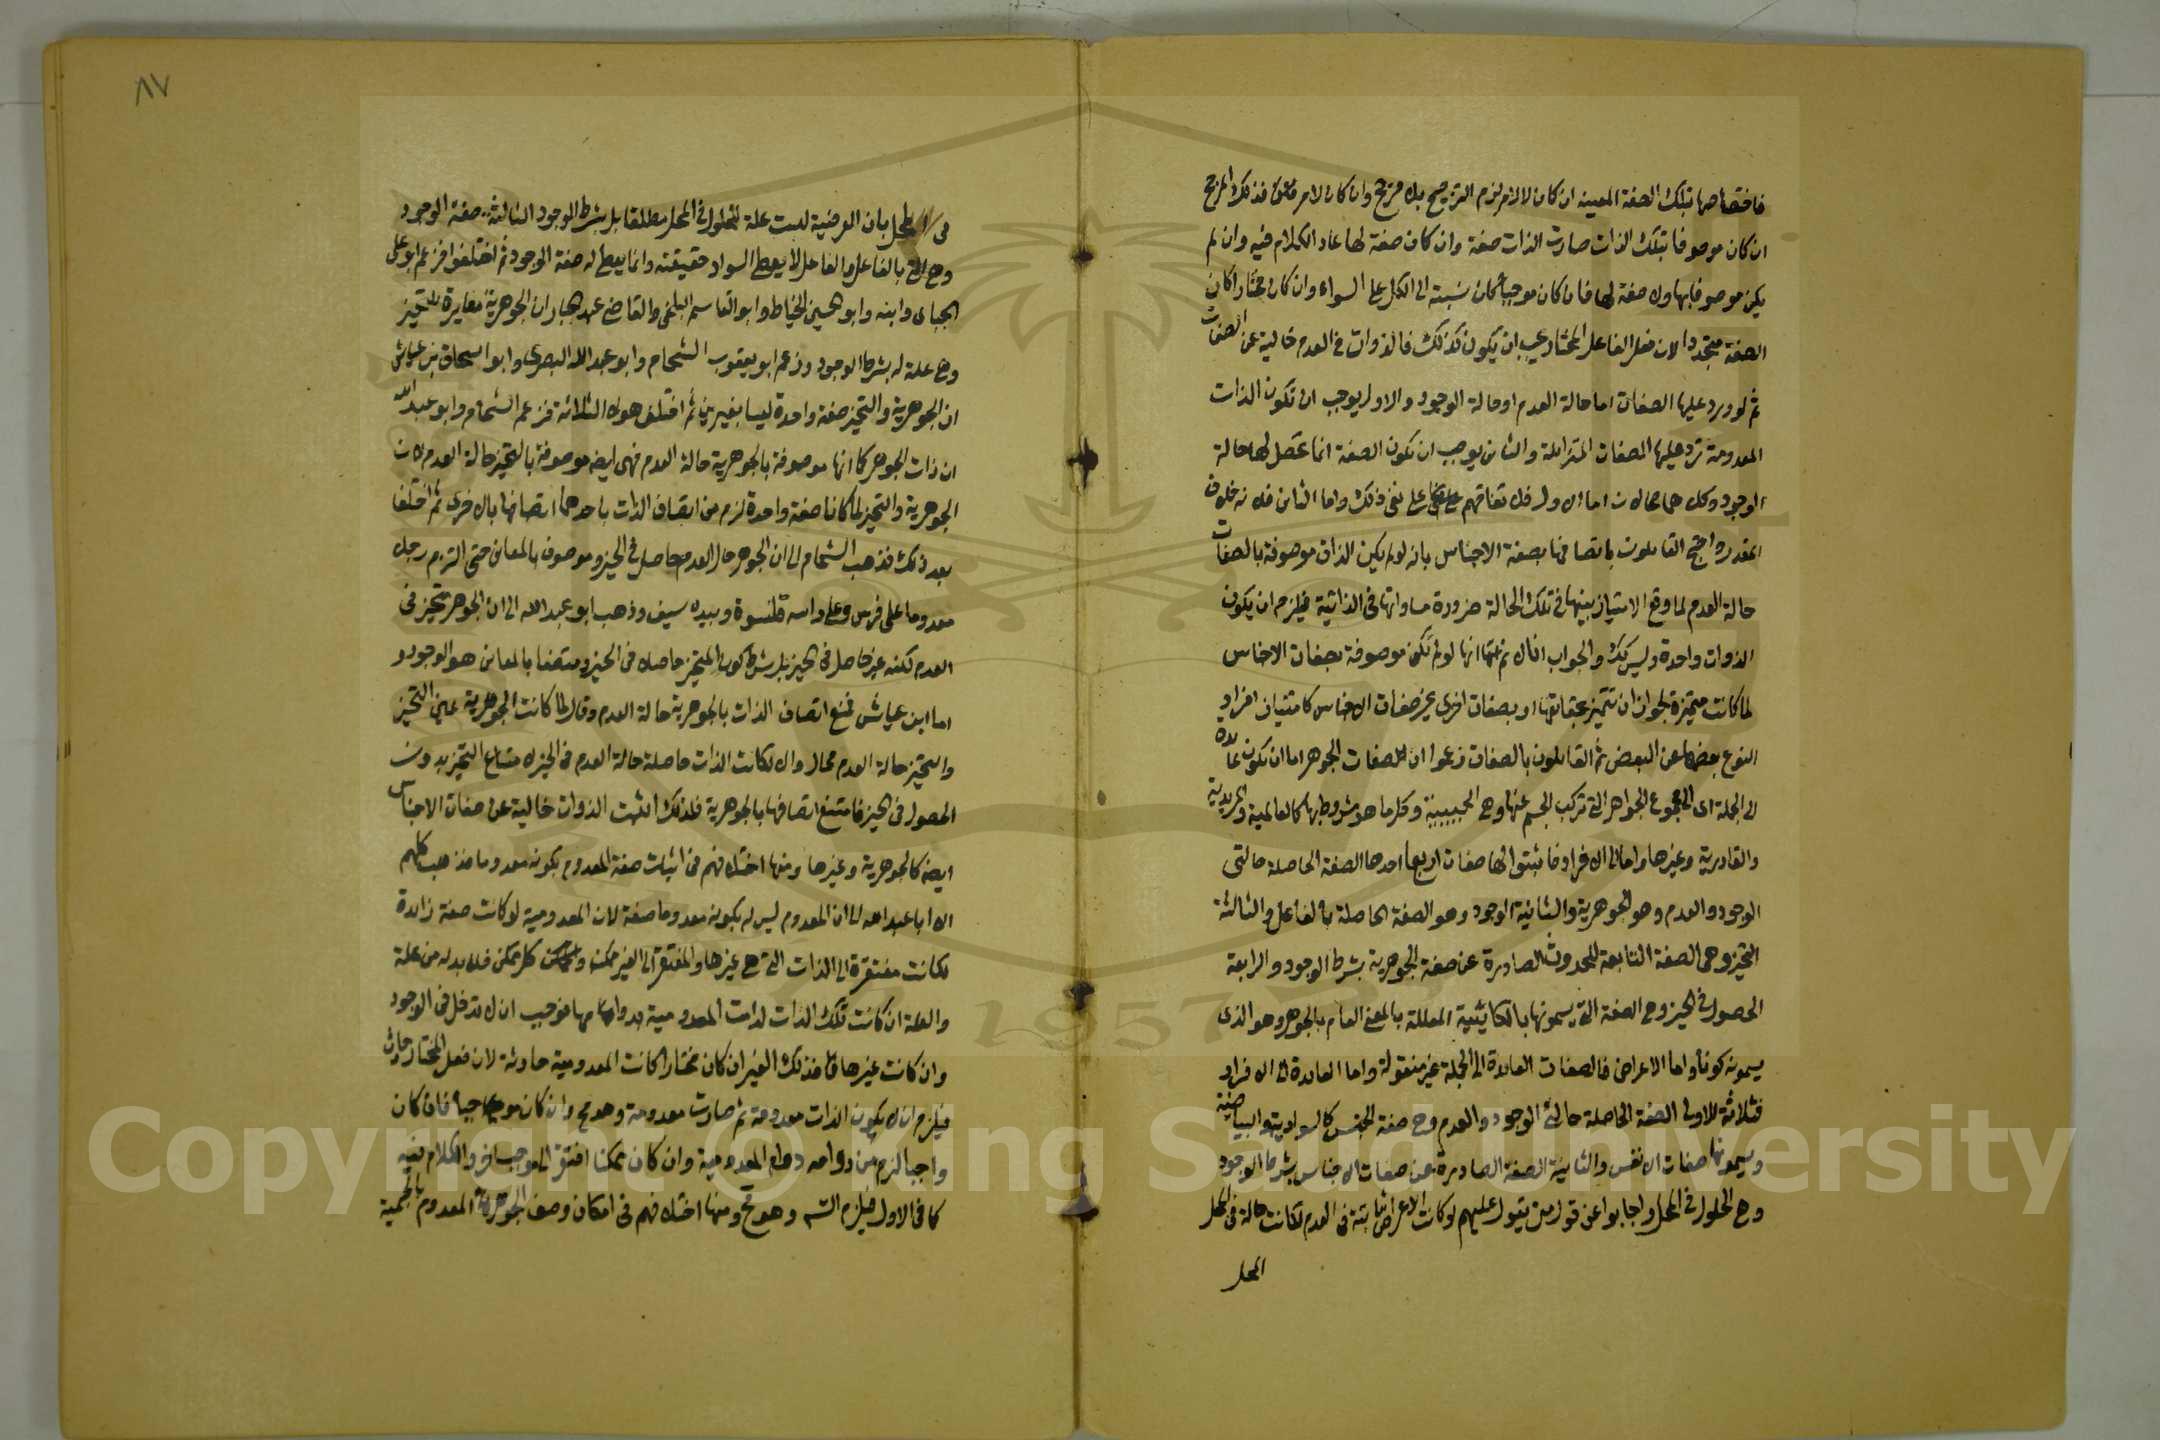 فاختصاصها بتلك الصفة المعينه ان كان لا لامر لزم الترجيح بلا مرجح وان كان لامر فذلك المرجح
ان كان موصوفا بتلك الذات صارت الذات صفة وان كان صفة لها عاد الكلام فيه وان لم
يكن موصوفا بها ولا صفة لها فان كان موجبا كان نسبته الى الكل على السواء وان كان مختارا كان
الصفة متجددا لان فعل الفاعل المختار يجب ان يكون كذلك فالذوات في العدم خالية عن الصفات
ثم لو ورد عليها الصفات اما حالة العدم او حالة الوجود والاول يوجب ان تكون الذات
المعدومة ترد عليها الصفات المتزايلة والثاني يوجب ان تكون الصفة انما تحصل لها حالة
الوجود وكلاهما محالان اما الاول فلاتفاقهم على نفي ذلك واما الثاني فلانه خلاف
المقدر واحتج القايلون باتصافها بصفة الاجناس بانه لو لم يكن الذات موصوفة بالصفات
حالة العدم لما وقع الامتياز بينها في تلك الحالة ضرورة مساواتها في الذاتية فيلزم ان يكون
الذوات واحدة وليس كك والجواب انا لا نم انها لو لم تكن موصوفة بصفات الاجناس
لما كانت متميزة لجواز ان تتميز بحقايقها او بصفات اخرى غير صفات الاجناس كامتياز افراد
النوع بعضها عن البعض ثم القايلون بالصفات زعموا ان للصفات الجوهر اما ان تكون عائدة
الى الجملة اى الى مجموع الجواهر التي تركب الجسم عنها وهي الحيية وكل ما هو مشروط بها كالعالمية والمريدية
والقادرية وغيرها واما الى الافراد فاثبتوا لها صفات اربعا احدها الصفة الحاصلة حالتى
الوجود والعدم وهو الجوهرية والثانية الوجود وهو الصفة الحاصلة بالفاعل والثالثة
التحيز وهى الصفة التابعة للحدوث الصادرة عن صفة الجوهرية بشرط الوجود والرابعة
الحصول في الحيز وهي الصفة التي يسمونها بالكائنية المعللة بالمعنى القائم بالجوهر وهو الذى
يسمونه كونا واما الاعراض فالصفات العائدة الى الجملة غير منقولة واما العايدة الى الافراد
فثلاثة الاولى الصفة الحاصلة حالتي الوجود والعدم وهي صفة الجنس كالسوادية والبياضية
ويسمونها صفات الانفس والثانية الصفة الصادرة عن صفات الاجناس بشرط الوجود
وهي الحلول في المحل واجابوا عن قول من يقول عليهم لو كانت الاعراض ثابتة في العدم لكانت حالة في المحل
المحل
٨٧
في المحل بان العرضية ليست علة للحلول في المحل مطلقا بل بشرط الوجود الثالثة صفة الوجود
وهي التي بالفاعل والفاعل لا يعطي السواد حقيقته وانما يعطي له صفة الوجود ثم اختلفوا فزعم ابو على
الجباى وابنه وابو الحسين الخياط وابو القاسم البلخى والقاضى عبد الجبار ان الجوهرية مغايرة للتحيز
وهي علة له بشرط الوجود وزعم ابو يعقوب الشحام وابو عبد الله البصرى وابو اسحاق بن عياش
ان الجوهرية والتحيز صفة واحدة ليسا بغيرين ثم اختلف هولاء الثلاثة فزعم الشحام وابو عبد الله
ان ذات الجوهر كما انها موصوفة بالجوهرية حالة العدم فهى ايضا موصوفة بالتحيز حالة العدم لان
الجوهرية والتحيز لما كانا صفة واحدة لزم من اتصاف الذات باحدهما اتصافها بالاخرى ثم اختلفا
بعد ذلك فذهب الشحام الى ان الجوهر حال العدم حاصل في الحيز وموصوف بالمعانى حتى التزم رجلا
معدوما على فرس وعلى راسه قلنسوة وبيده سيف وذهب ابو عبد الله الى ان الجوهر متحيز فى
العدم لكنه غير حاصل في الحيز بل شرط كون المتحيز حاصلا فى الحيز ومتصفا بالمعانى هو الوجود و
اما ابن عياش فمنع اتصاف الذات بالجوهرية حالة العدم وقال لما كانت الجوهرية عين التحيز
والتحيز حالة العدم محال والا لكانت الذات حاصلة حالة العدم فى الحيز لامتناع التحيز بدون
الحصول فى الحيز فامتنع اتصافها بالجوهرية فلذلك اثبت الذوات خالية عن صفات الاجناس
ايضا كالجوهرية وغيرها ومنها اختلافهم فى اثبات صفة المعدوم بكونه معدوما فذهب كلهم
الا ابا عبد الله الى ان المعدوم ليس له بكونه معدوما صفة لان المعدومية لو كانت صفة زائدة
لكانت مفتقرة الى الذات التي هي غيرها والمفتقر الى الغير ممكن وكل ممكن فلا بد له من علة
والعلة ان كانت تلك الذات لدامت المعدومية بدوامها فوجب ان لا تدخل فى الوجود
وان كانت غيرها فذلك الغير ان كان مختارا كانت المعدومية حادثة لان فعل المختار حادث
فيلزم ان لا يكون الذات معدومة ثم صارت معدومة وهو مح وان كان موجبا فان كان
واجبا لزم من دوامه دوام المعدومية وان كان ممكنا افتقر الى موجب اخر والكلام فيه
كما فى الاول فيلزم التس وهو مح ومنها اختلافهم فى امكان وصف الجوهر المعدوم بالجسمية
Copyright © King Saud University
1957